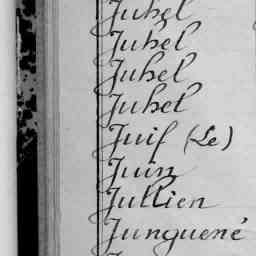 Juhel
Juhel
Juhel
Juhel
Juif (Le)
Juin
Jullien
Junguené